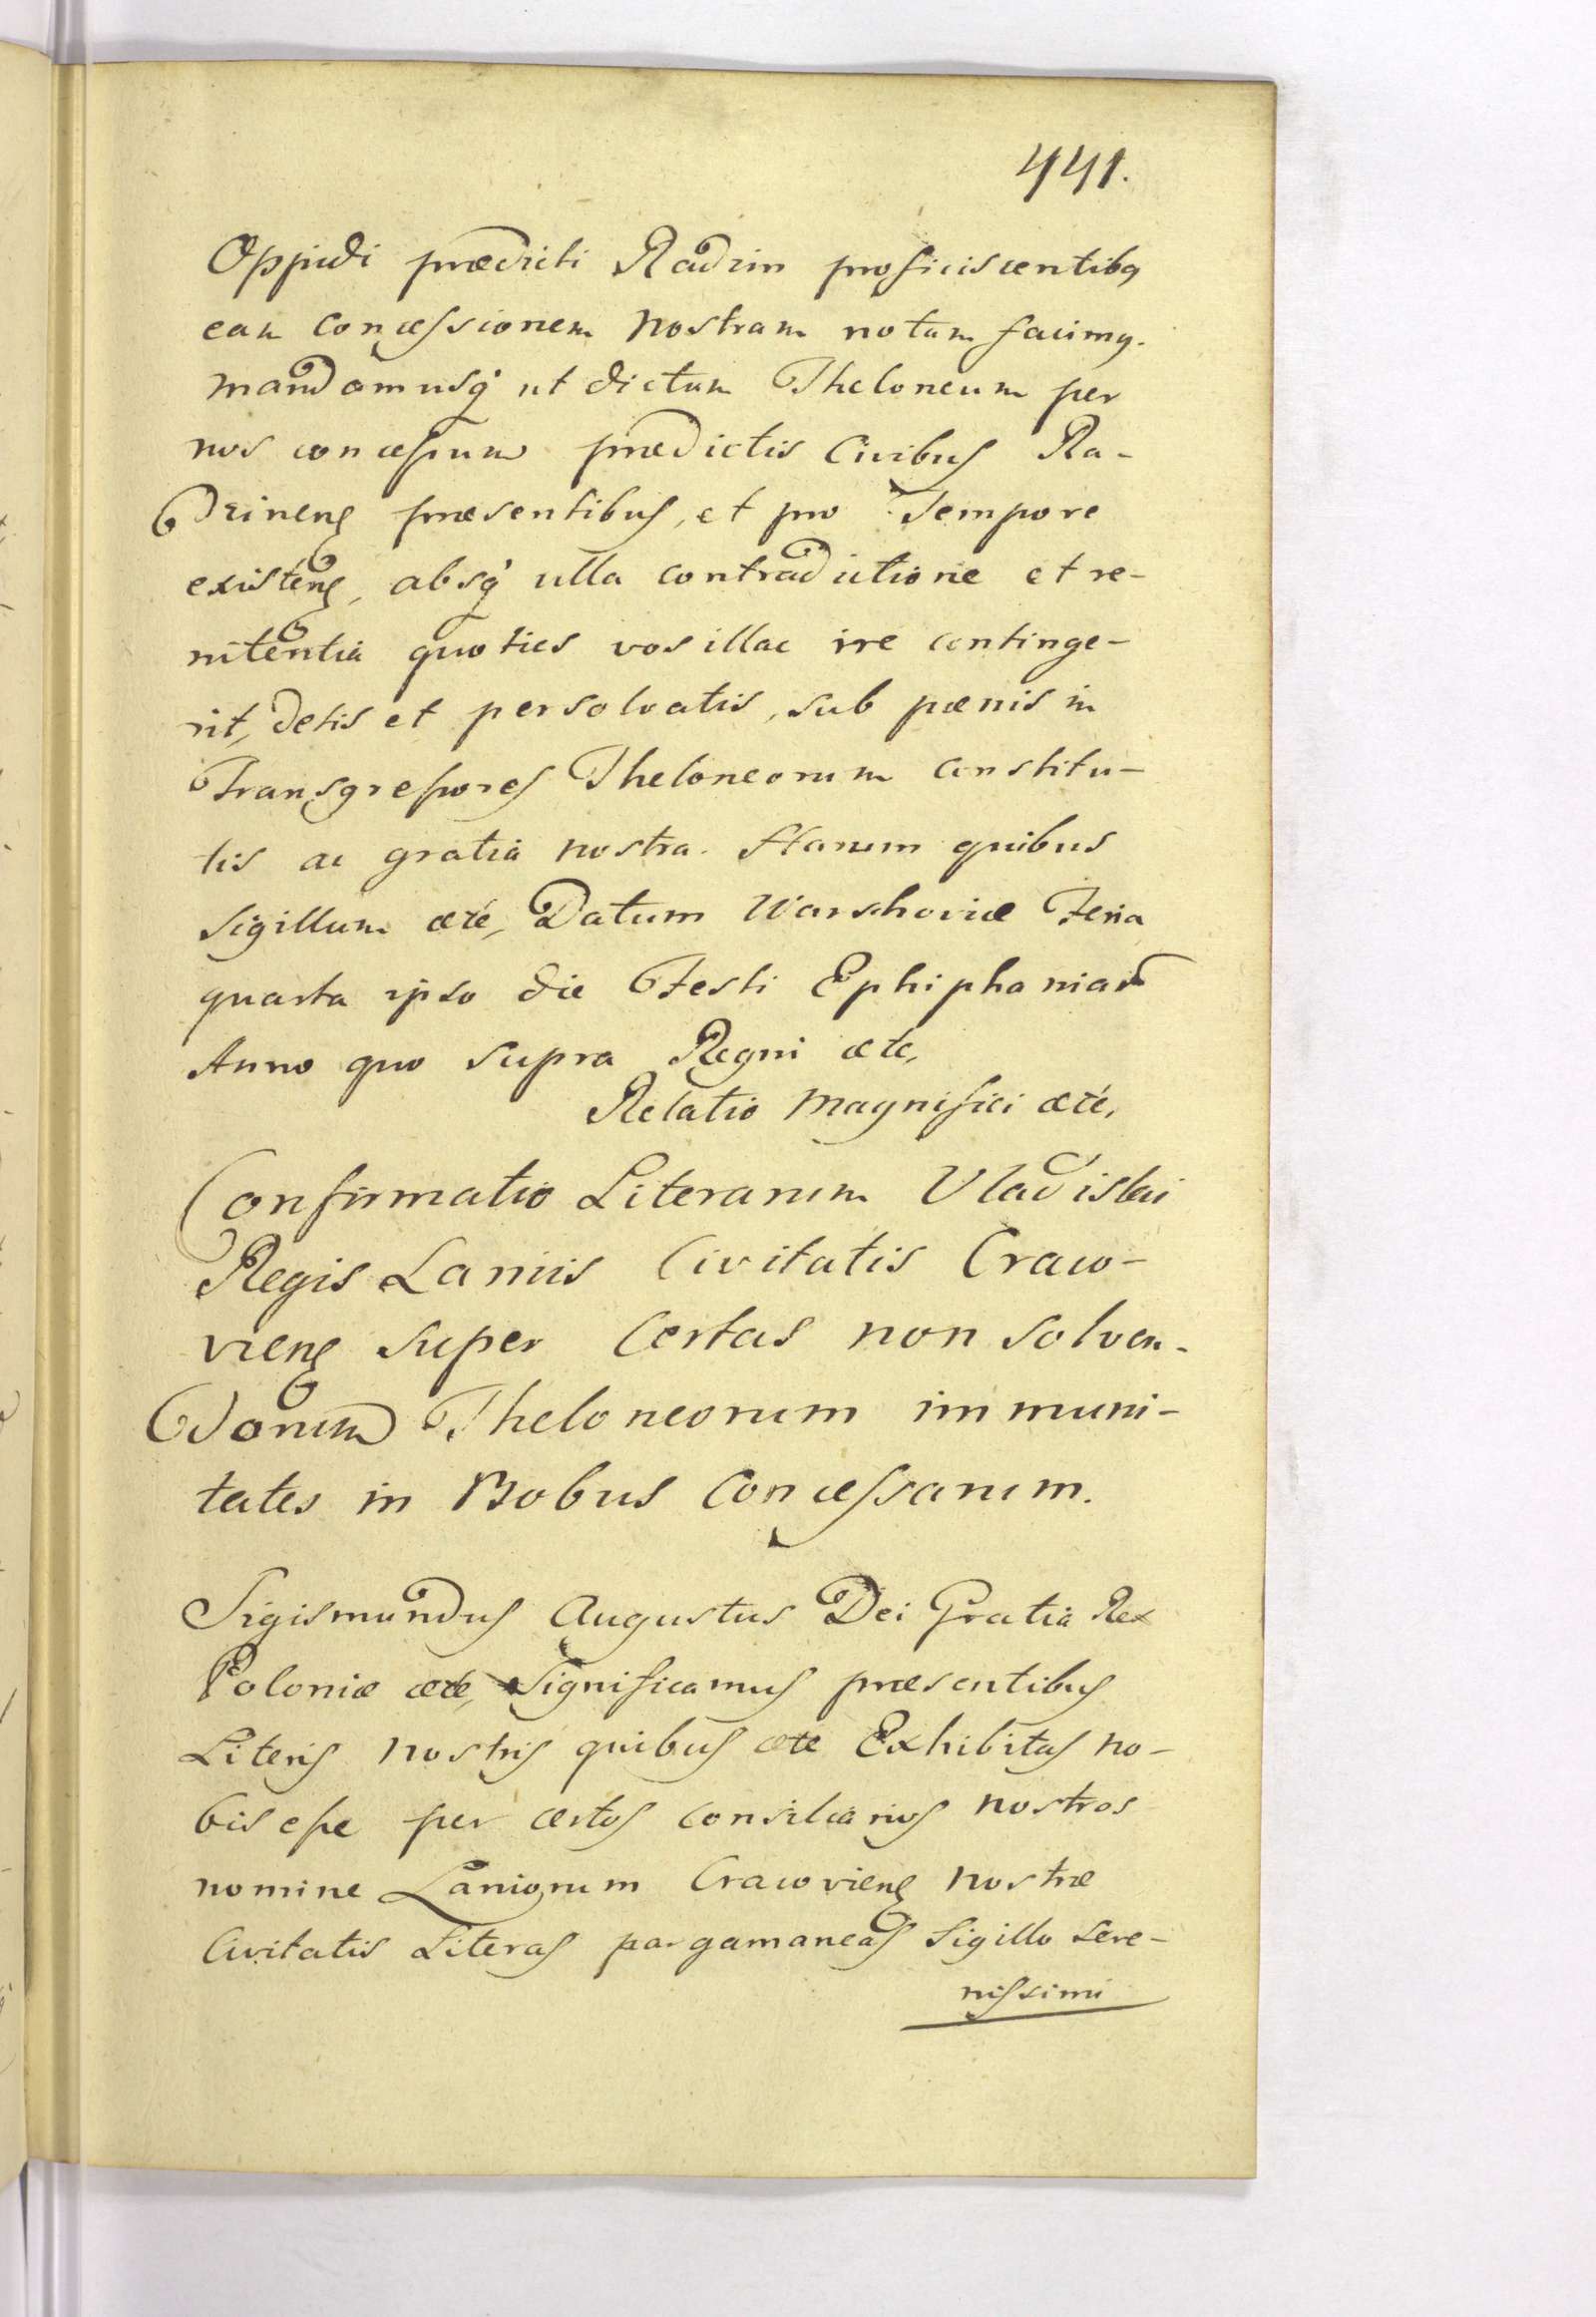 441.
Oppidi prædicti Radzin proficiscentibq
eam concessionem nostram notam facimq.
mandamusq' ut dictum Theloneum per
nos concessum prædictis Civibus Ra-
dzinens præsentibus, et pro Tempore
existens, absq' ulla contradictione et re-
nitentia quoties vos illac ire continge-
rit, detis et persolvatis, sub pœnis in
Transgressores Theloneorum constitu-
tis ac gratia nostra. Harum quibus
Sigillum ætc, Datum Warschoviæ Feria
quarta ipso die Festi Ephiphaniarum
Anno quo supra Regni ætc,
Relatio Magnifici ætc,
Confirmatio Literarum Vladislai
Regis Laniis Civitatis Craco-
viens super Certas non solven-
dorum Theloneorum immuni-
tates in Bobus Concessarum.
Sigismundus Augustus Dei Gratia Rex
Poloniæ ætc, Significamus præsentibus
Literis nostris quibus ætc Exhibitas no-
bis esse per certos consiliarios nostros
nomine Laniorum Cracoviens nostræ
Civitatis Literas pargamaneas Sigillo Sere-
nissimi